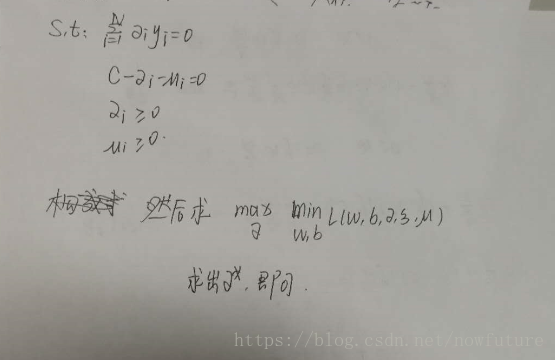 S.t: ∑_{i=1}^{N} ∂i yi=0
C-∂i-μi=0
∂i ≥0
μi ≥0.
然后求 max_∂ min_{w,b} L(w,b,∂,ξ,μ)
求出∂*,即可.
https://blog.csdn.net/nowfuture